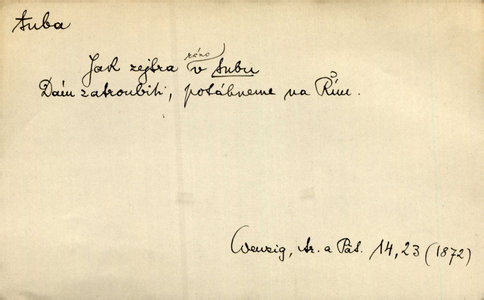 tuba
Jak zejtra ráno v tubu
Dám zatroubiti, potáhneme na Řím.
Wenzig, Ar. a Pát. 14, 23 (1872)